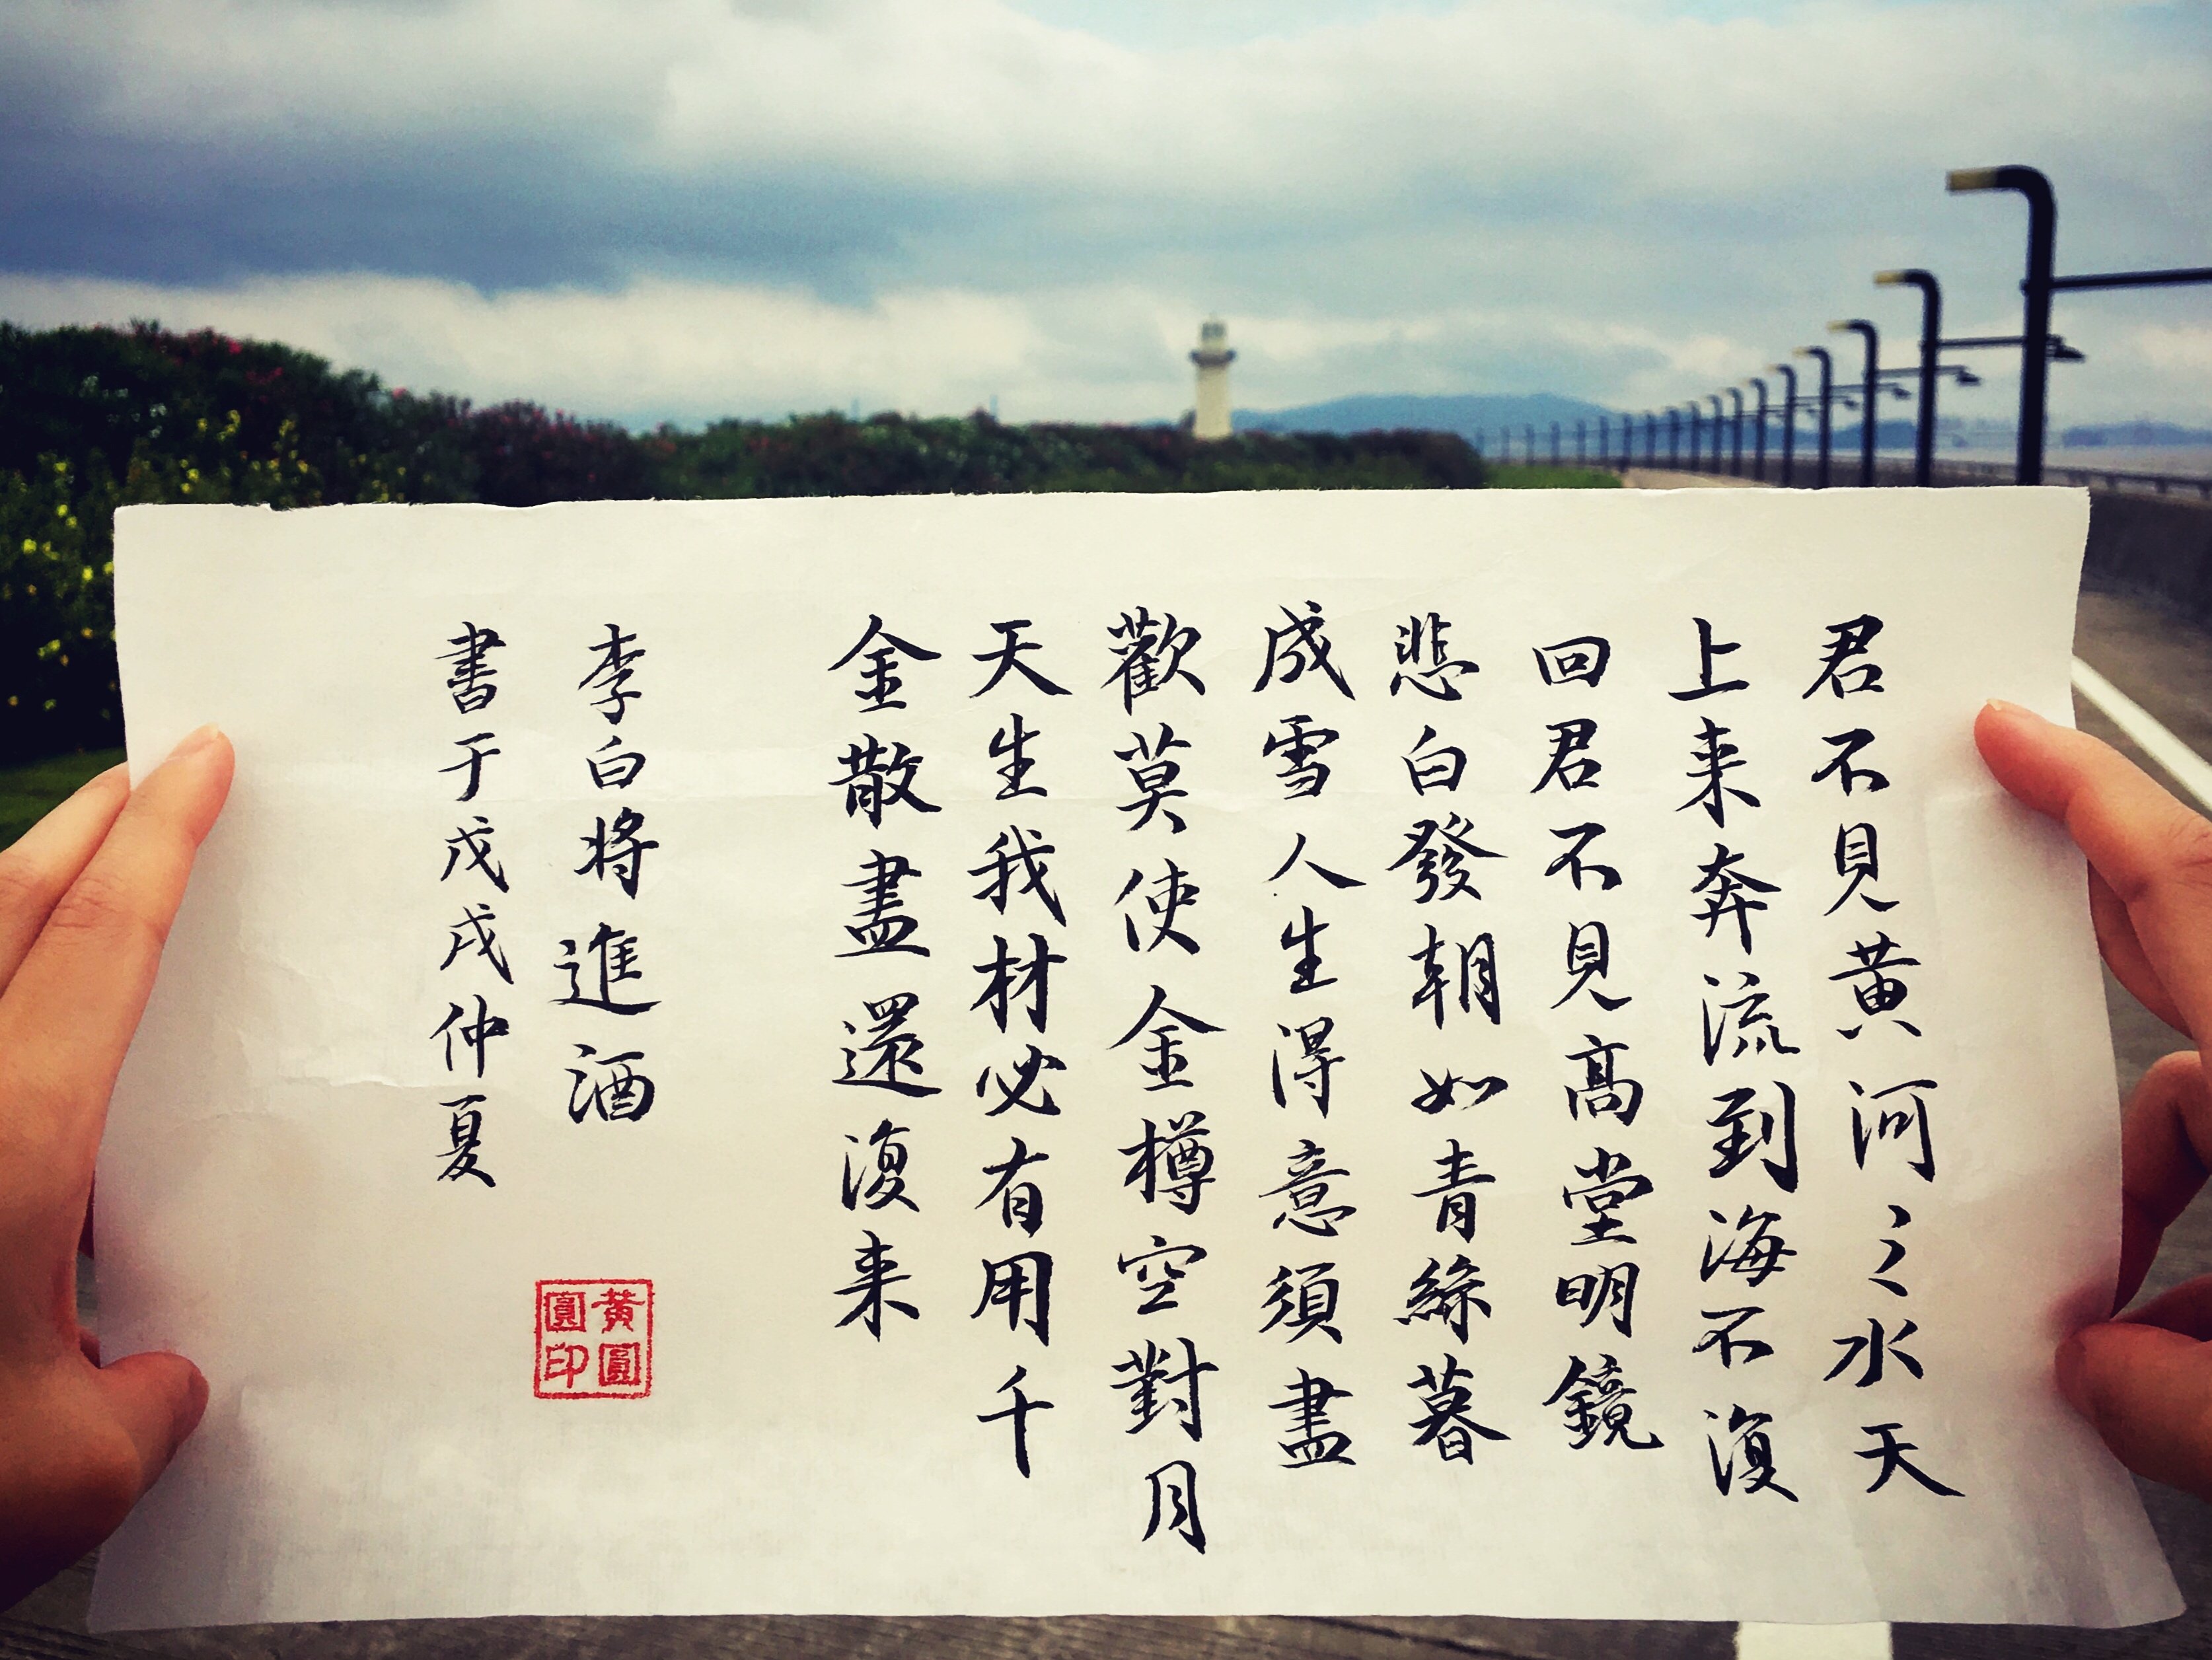 君不見黄河之水天
上来奔流到海不復
回君不見高堂明鏡
悲白發朝如青絲暮
成雪人生得意須盡
歡莫使金樽空對月
天生我材必有用千
金散盡還復来
李白将進酒
書于戊戌仲夏
黄圓
圓印